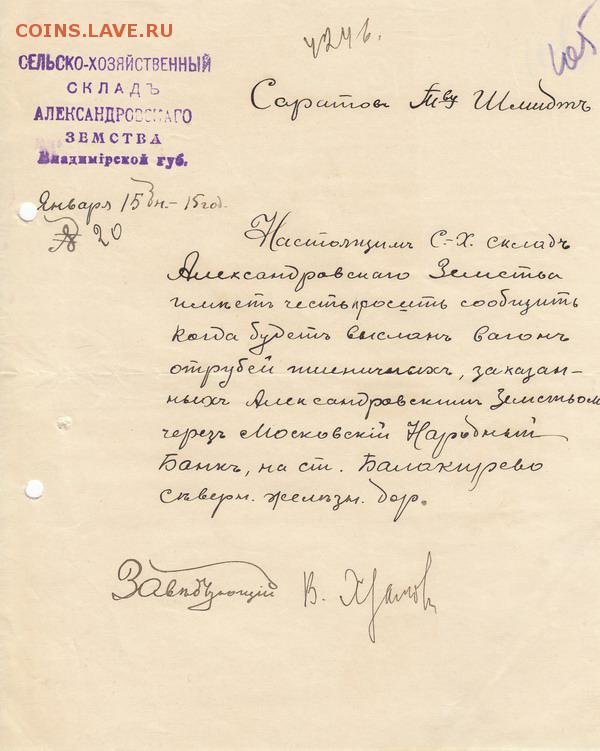 COINS.LAVE.RU
424 в.
СЕЛЬСКО-ХОЗЯЙСТВЕННЫЙ
СКЛАДЪ
АЛЕКСАНДРОВСКАГО
ЗЕМСТВА
Владимірской губ.
Саратовъ Т-ву Шмидтъ
Января 15 дн.- 15 год.
№ 20
Настоящимъ С.-Х. складъ
Александровскаго Земства
имѣетъ честь просить сообщить
когда будетъ высланъ вагонъ
отрубей пшеничныхъ, заказан-
ныхъ Александровскимъ Земствомъ
черезъ Московскій Народный
Банкъ, на ст. Балакирево
Сѣверн. желѣзн. дор.
Завѣдующій В. Храмовъ